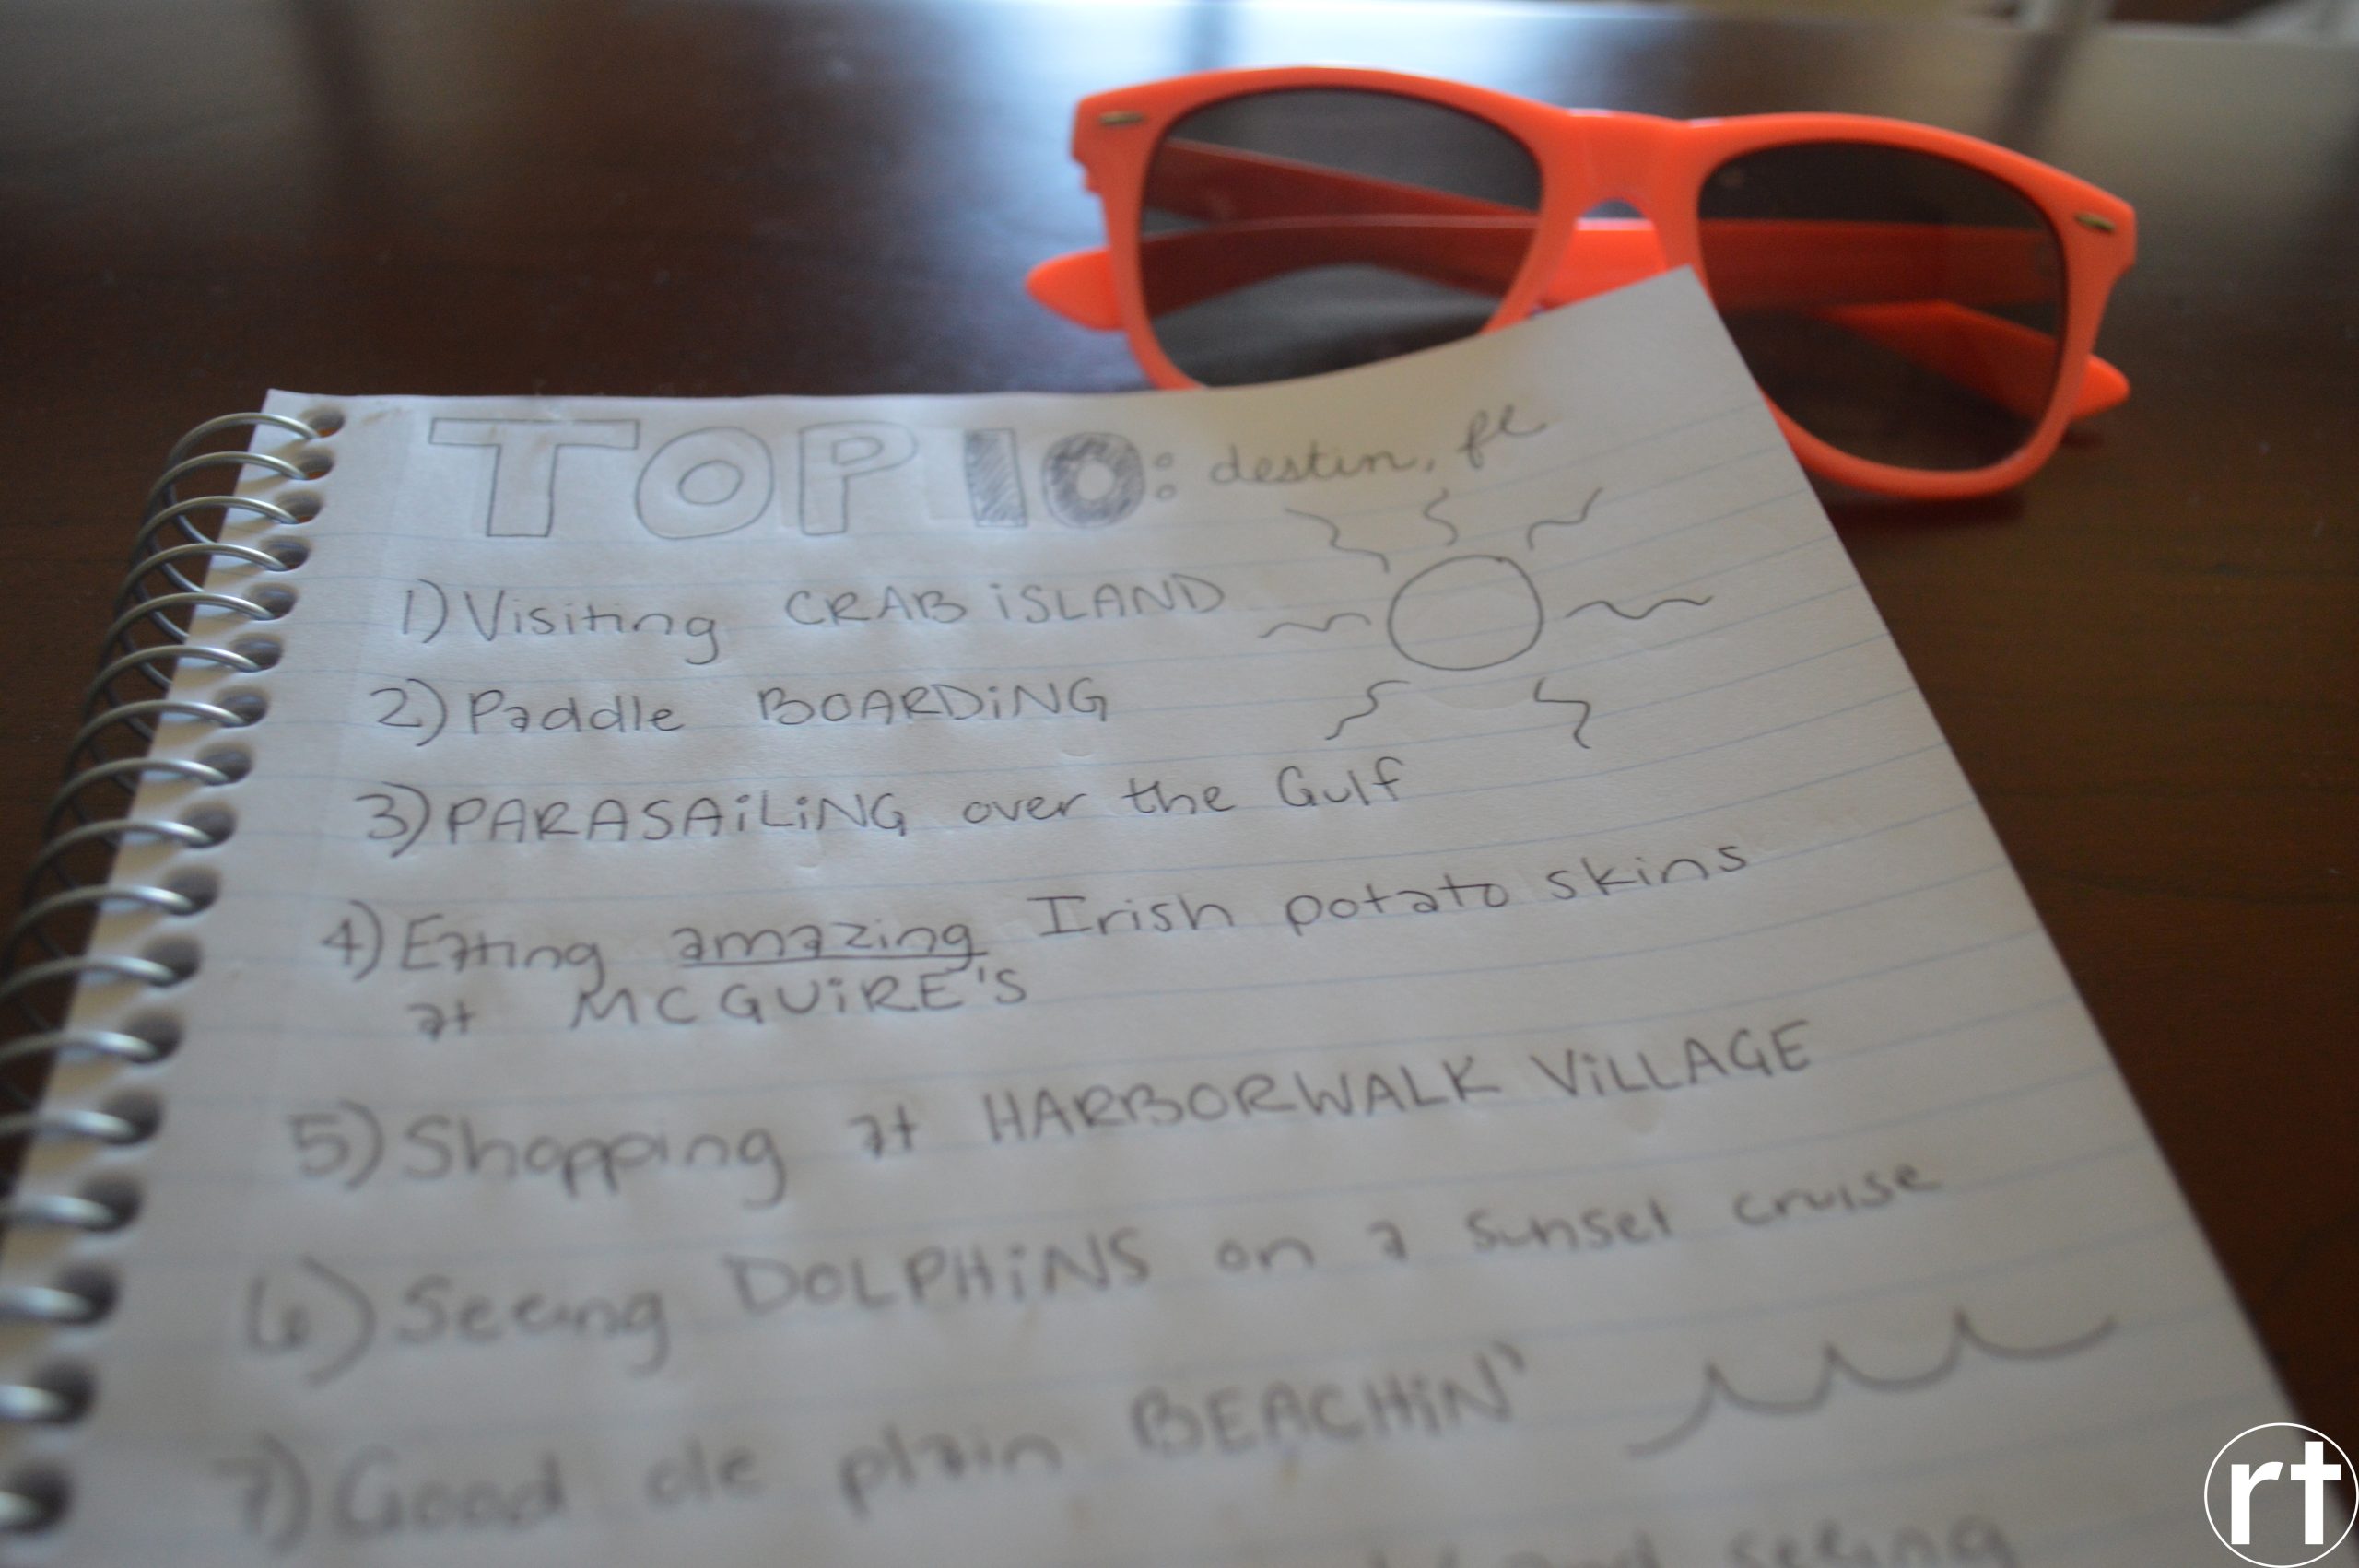 TOP 10: destin, fl
1) Visiting CRAB iSLAND
2) Paddle BOARDiNG
3) PARASAiLiNG over the Gulf
4) Eating amazing Irish potato skins
at MCGUiRE'S
5) Shopping at HARBORWALK ViLLAGE
6) Seeing DOLPHiNS on a sunset cruise
7) Good ole plain BEACHiN'
and seeing
rt